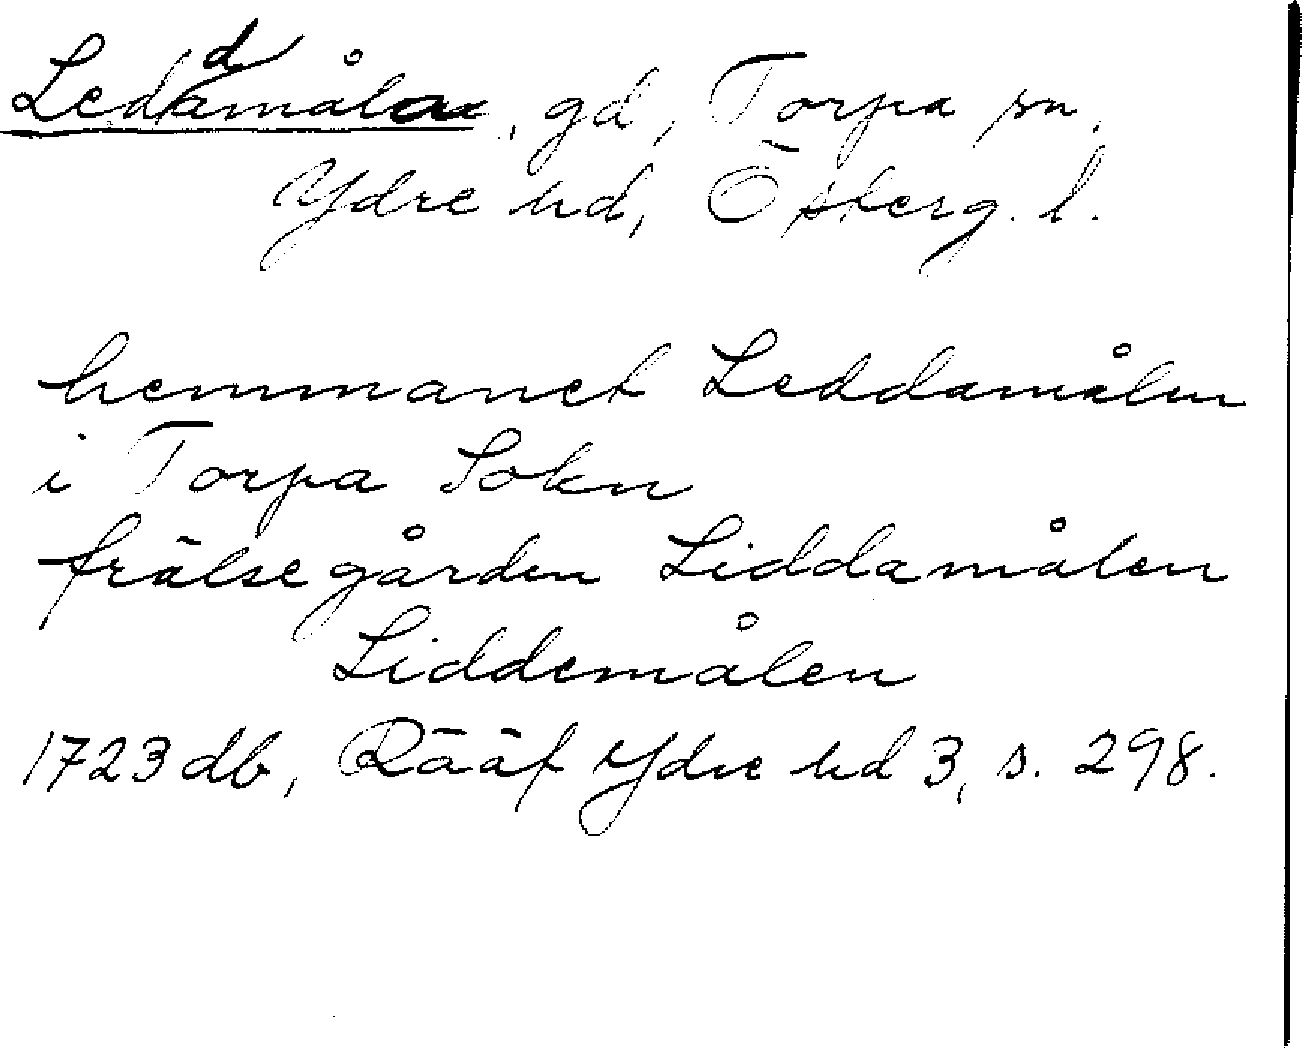 Leddamåla, gd, Torpa sn,
Ydre hd, Österg. l.
hemmanet Leddamålen
i Torpa Sokn
frälsegården Liddamålen
Liddemålen
1723 db, Rääf Ydre hd 3, s. 298.